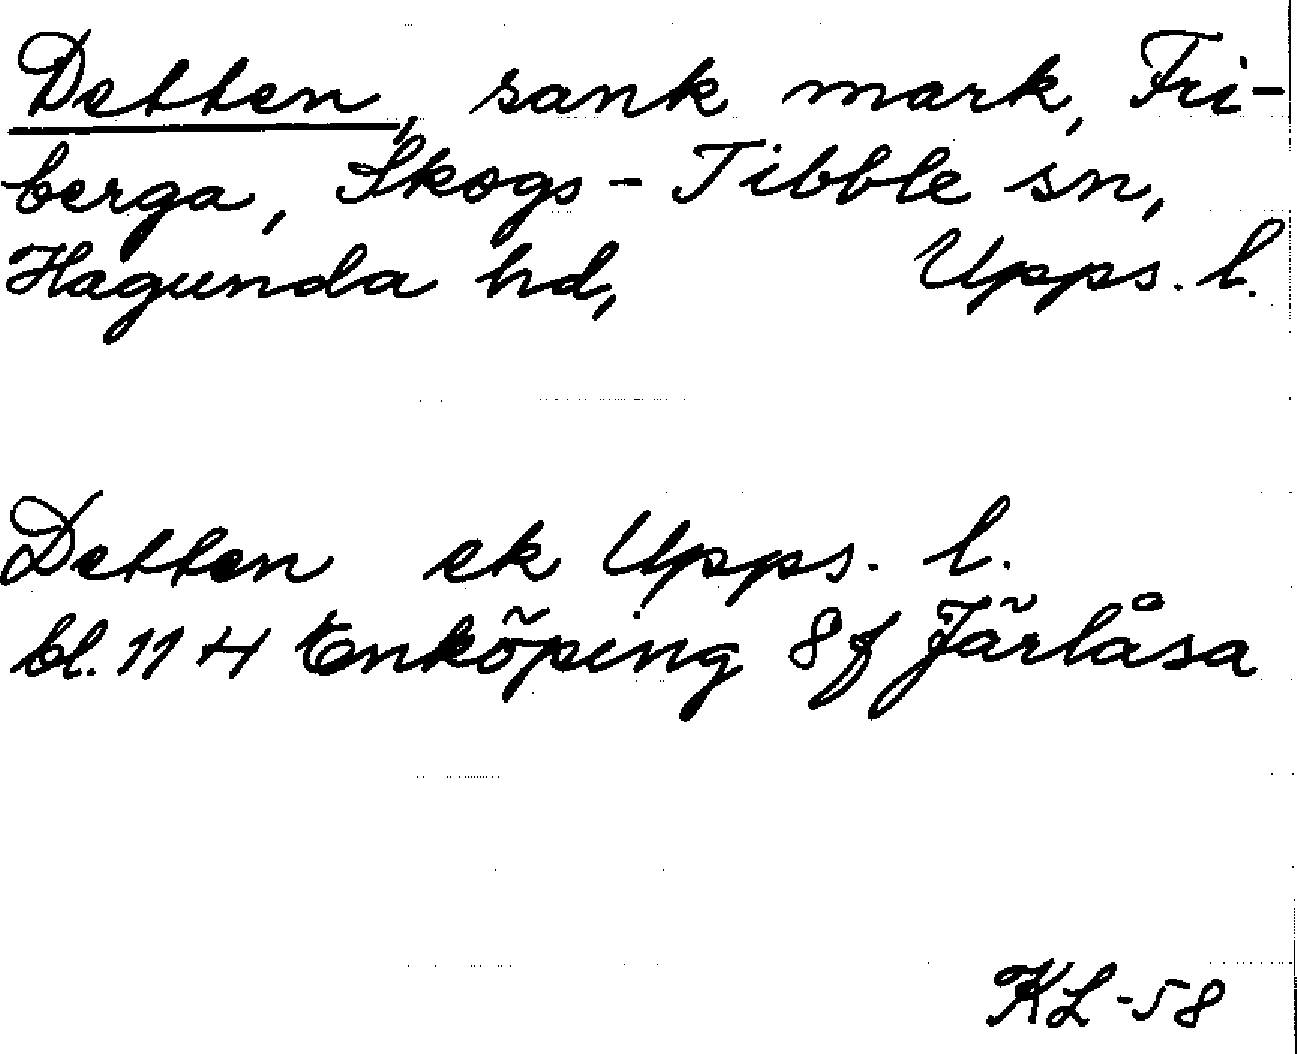 Detten, sank mark, Fri-
berga, Skogs-Tibble sn,
Hagunda hd, Upps. l.
Detten ek Upps. l.
bl. 114 Enköping 8f Järlåsa
KL-58